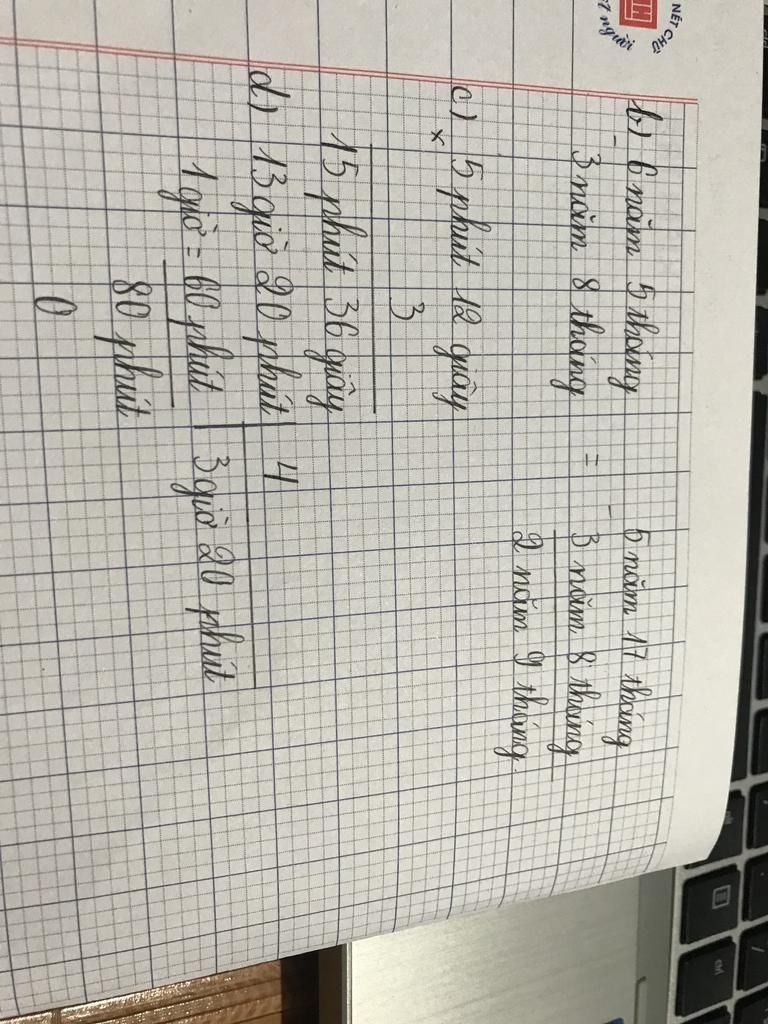 NÉT CHỮ
nết người
b) 6 năm 5 tháng - 5 năm 17 tháng
- 3 năm 8 tháng = 3 năm 8 tháng
2 năm 9 tháng.
c) 5 phút 12 giây
× 3
15 phút 36 giây
d) 13 giờ 20 phút | 4
1 giờ = 60 phút | 3 giờ 20 phút
80 phút
0
ctrl